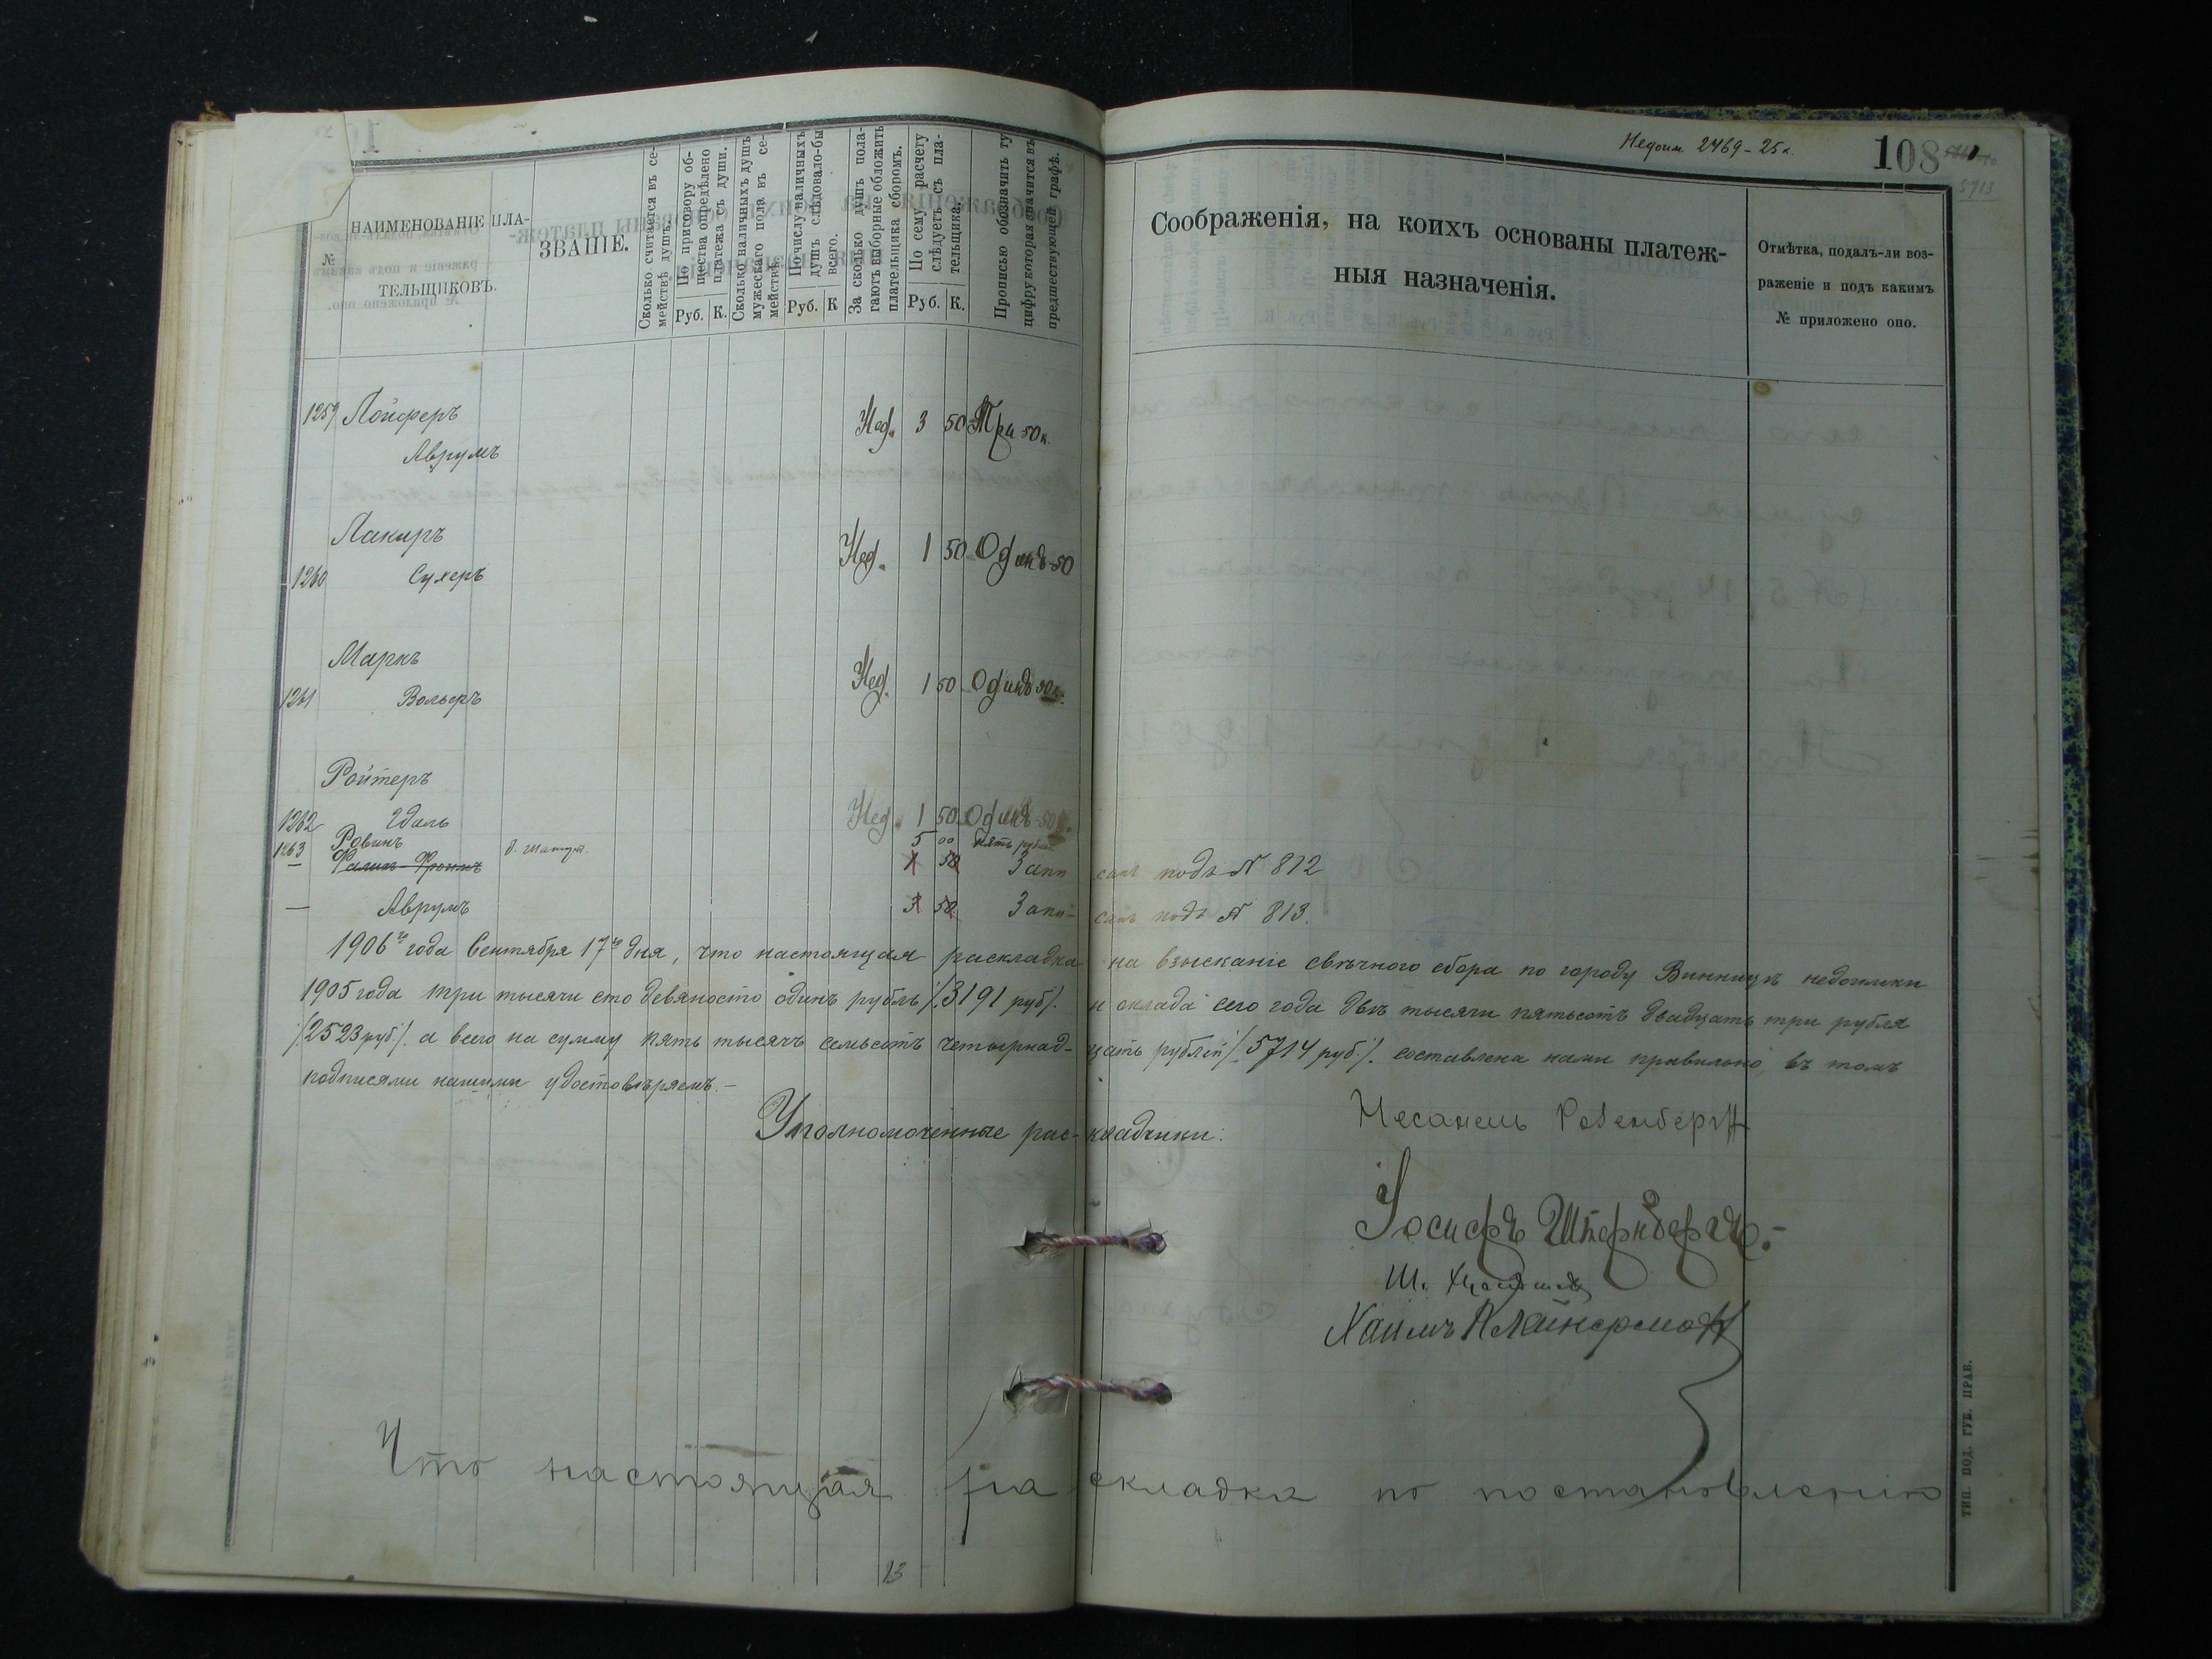 Недоим. 2469-25к.
108
5713
№
НАИМЕНОВАНІЕ ПЛА-
ТЕЛЬЩИКОВЪ.
ЗВАНІЕ.
Сколько считается въ се-
мействѣ душъ.
По приговору об-
щества опредѣлено
платежа съ души.
Руб. К.
Сколько наличныхъ душъ
мужескаго пола въ се-
мействѣ.
По числу наличныхъ
душъ слѣдовало-бы
всего.
Руб. К
За сколько душъ пола-
гаютъ выборные обложить
плательщика сборомъ.
По сему расчету
слѣдуетъ съ пла-
тельщика.
Руб. К.
Прописью обозначить ту
цифру которая значится въ
предшествующей графѣ.
Соображенія, на коихъ основаны платеж-
ныя назначенія.
Отмѣтка, подалъ-ли воз-
раженіе и подъ какимъ
№ приложено оно.
1259 Лойферъ Нед. 3 50 Три 50к.
Аврумъ
Лакиръ Нед. 1 50 Одинъ-50
1260 Сухеръ
Маркъ Нед. 1 50 Одинъ 50к.
1261 Вольфъ
Ройтеръ
1262 Идаль Нед. 1 50 Одинъ-50к.
1263 Ровинъ 5 00 Пять рублей
— 1 50 Записанъ подъ № 812
— Аврумъ 3 50 Запи-санъ подъ № 813.
1906го года Сентября 17го дня, что настоящая раскладка на взысканіе свѣчного сбора по городу Винницѣ недоимки
1905 года три тысячи сто девяносто одинъ рубль /3191 руб/. и оклада сего года двѣ тысячи пятьсотъ двадцать три рубля
/2523 руб/. а всего на сумму пять тысячъ семьсотъ четырнад-цать рублей /5714 руб/. составлена нами правильно, въ томъ
подписями нашими удостовѣряемъ.-
Уполномоченные рас-кладчики:
Несанель Розенбергъ
Іосифъ Штернбергъ.-
Ш.
Хаимъ Клейнерманъ
Что настоящая раскладка по постановленію
13
ТИП. ПОД. ГУБ. ПРАВ.